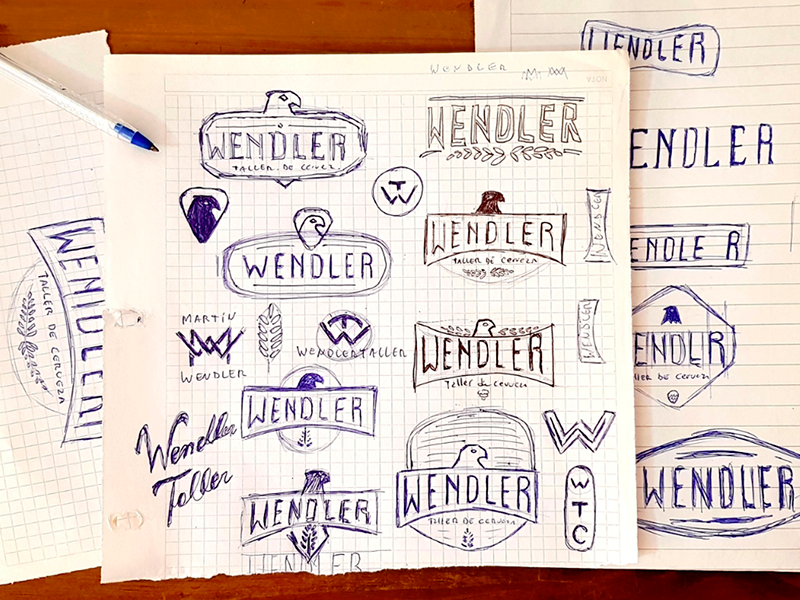 WENDLER
NOTA
WENDLER
TALLER DE CERVEZ
WENDLER
TW
WENDLER
WENDLER
TALLER DE CERVEZA
WENDLER
MARTIN
MW
WENDLER
TW
WENDLERTALLER
WENDLER
Taller de cerveza
WENDLER
WENDLER
Wendler
Taller
W
WENDLER
WENDLER
TALLER DE CERVEZA
W
T
C
WENDLER
WENDLER
TALLER DE CERVEZA
WENDLER
ENDLER
ENDLE R
ENDLR
LER DE CERVEZA
WENDLER